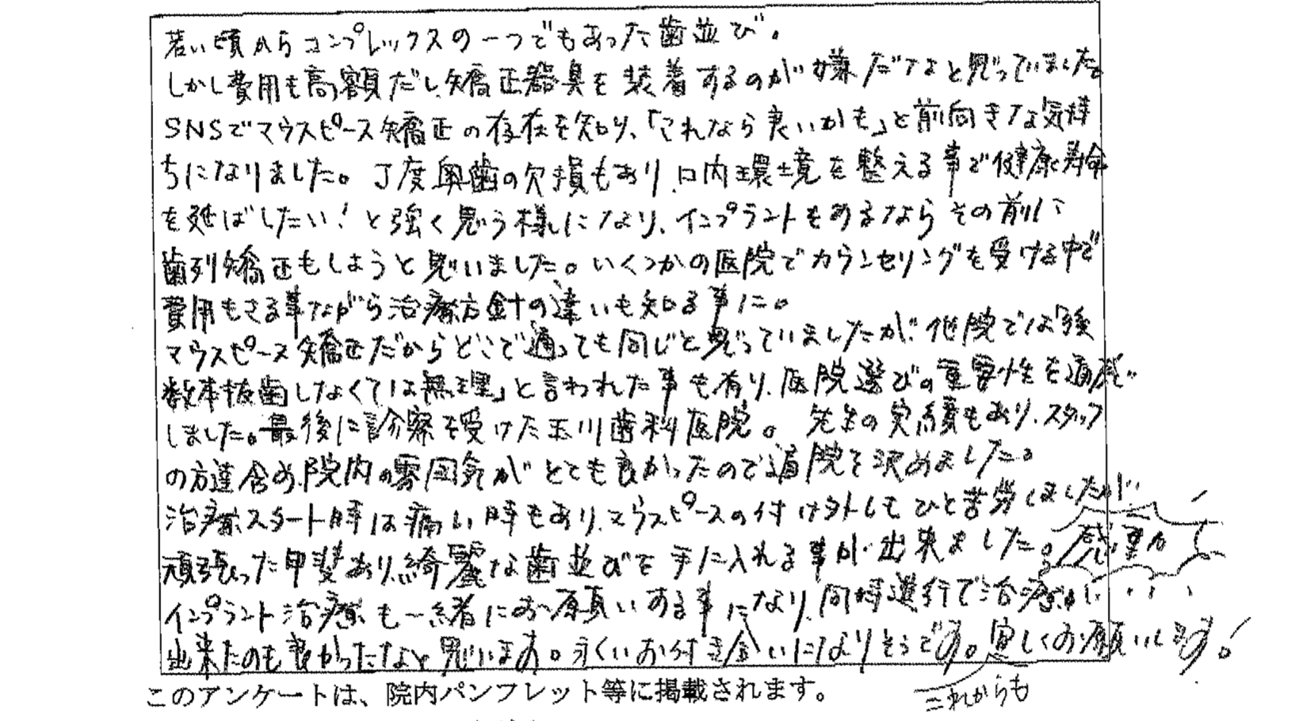 若い頃からコンプレックスの一つでもあった歯並び。
しかし費用も高額だし、矯正器具を装着するのが嫌だなと思っていました。
SNSでマウスピース矯正の存在を知り、「これなら良いかも」と前向きな気持
ちになりました。丁度奥歯の欠損もあり、口内環境を整える事で健康寿命
を延ばしたい！と強く思う様になり、インプラントをするならその前に
歯列矯正もしようと思いました。いくつかの医院でカウンセリングを受ける中で
費用もさる事ながら治療方針の違いも知る事に。
マウスピース矯正だからどこで通っても同じと思っていましたが、他院では「強
数本抜歯しなくては無理」と言われた事も有り、医院選びの重要性を痛感
しました。最後に診察を受けた玉川歯科医院。先生の実績もあり、スタッフ
の方達含め、院内の雰囲気がとても良かったので通院を決めました。
治療スタート時は痛い時もあり、マウスピースの付け外しもひと苦労しましたが
頑張った甲斐あり、綺麗な歯並びを手に入れる事が出来ました。感動
インプラント治療も一緒にお願いする事になり、同時進行で治療が
出来たのも良かったなと思います。永いお付き合いになりそうです。宜しくお願いします！
これからも
このアンケートは、院内パンフレット等に掲載されます。